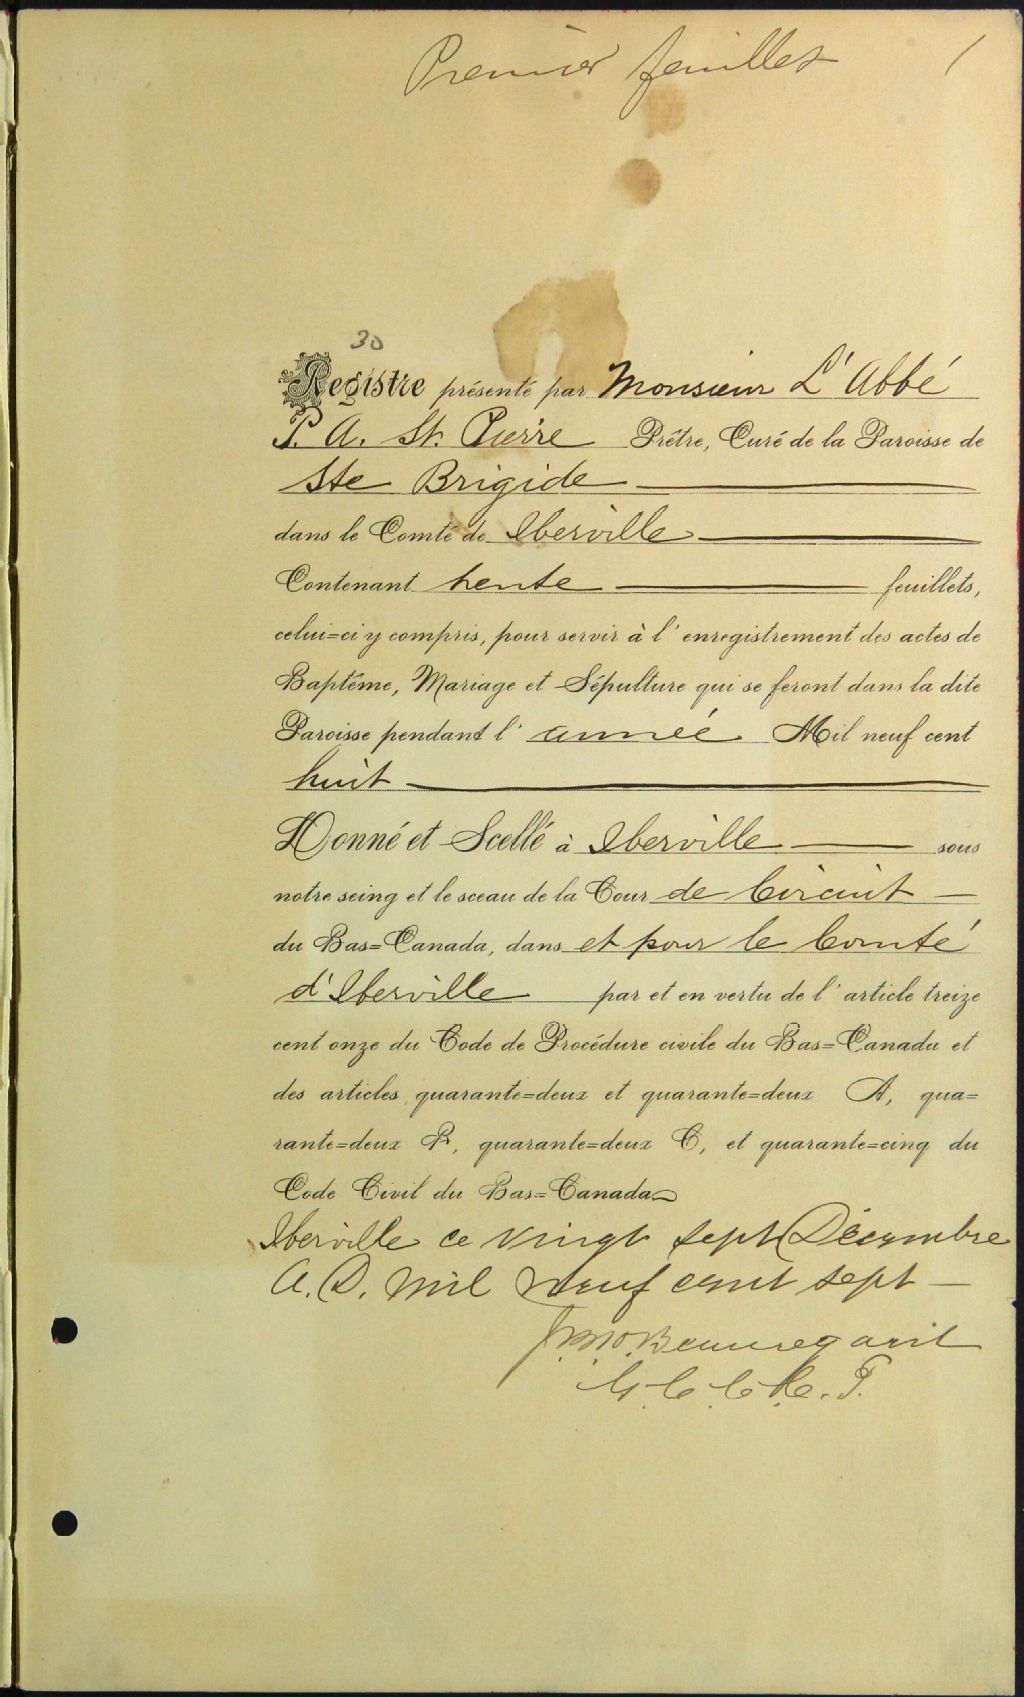 Premier feuillet 1
30
Registre présenté par Monsieur L'Abbé
P. A. St. Pierre Prêtre, Curé de la Paroisse de
Ste Brigide
dans le Comté de Iberville
Contenant trente feuillets,
celui=ci y compris, pour servir à l'enregistrement des actes de
Baptême, Mariage et Sépulture qui se feront dans la dite
Paroisse pendant l'année Mil neuf cent
huit
Donné et Scellé à Iberville sous
notre seing et le sceau de la Cour de Circuit
du Bas=Canada, dans et pour le Comté
d'Iberville par et en vertu de l'article treize
cent onze du Code de Procédure civile du Bas=Canada et
des articles quarante=deux et quarante=deux A, qua=
rante=deux B, quarante=deux C, et quarante=cinq du
Code Civil du Bas=Canada
Iberville ce vingt sept Décembre
A. D. mil neuf cent sept
Beauregard